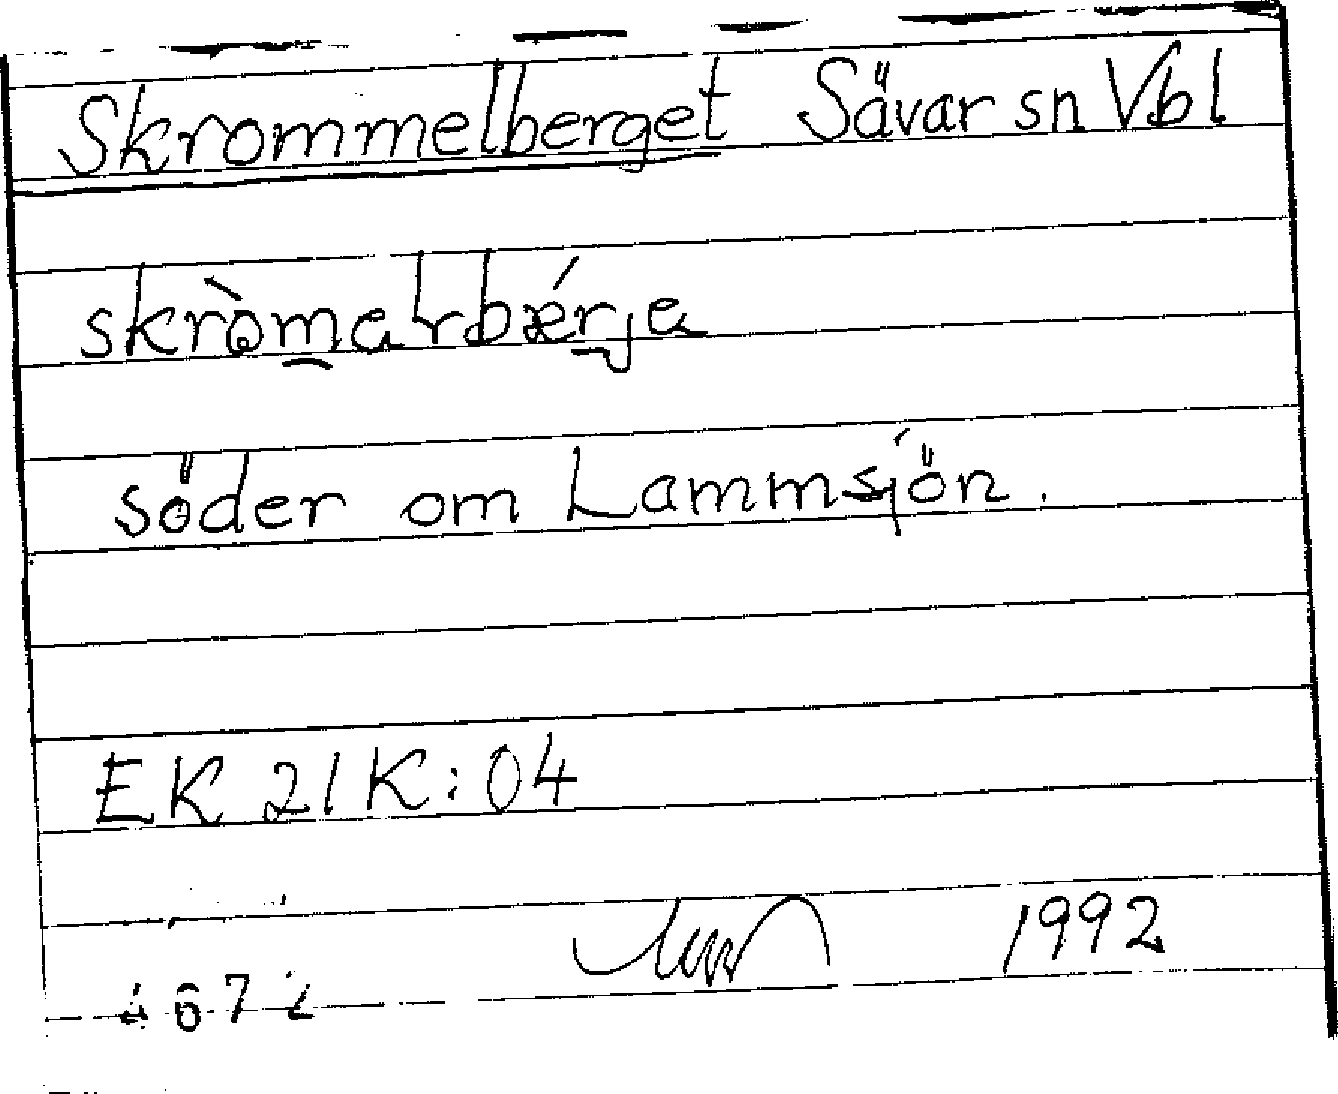 Skrommelberget Sävar sn Vbl
skròmaɫbǽrja
söder om Lammsjön.
EK 21K:04
1992